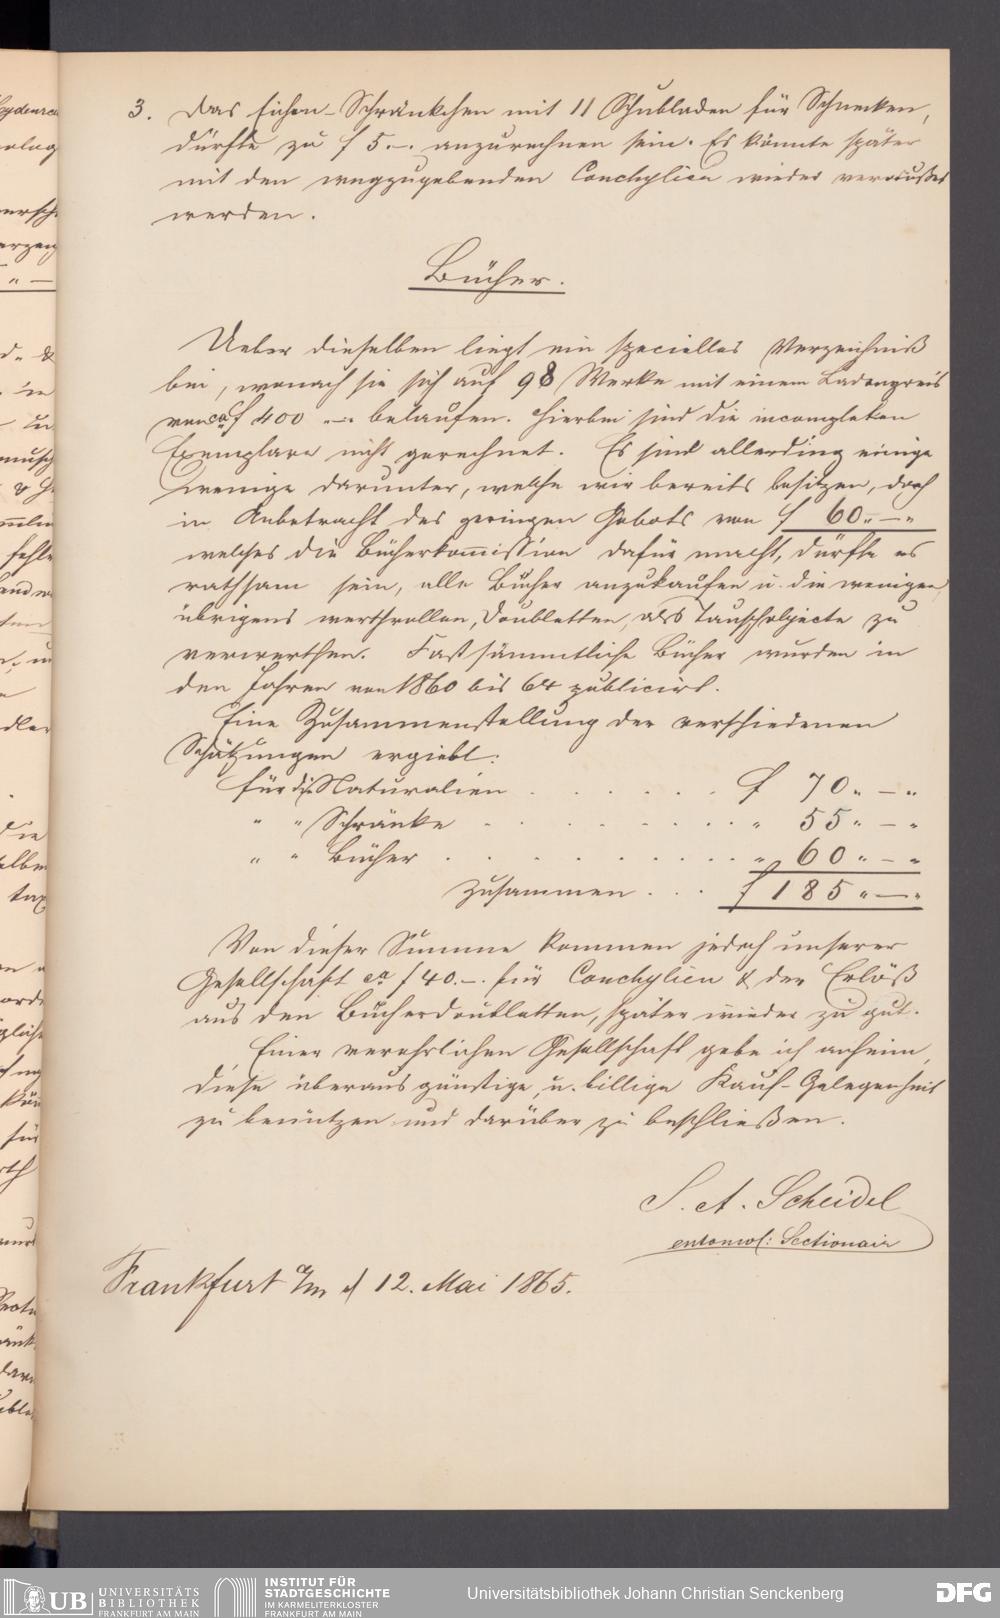 3. Das Eichen-Schränkchen mit 11 Schubladen für Schnecken,
dürfte zu f 5.–. anzurechnen sein. Es könnte später
mit den wegzugebenden Conchylien wieder veräußert
werden.
Bücher.
Ueber dieselben liegt ein specielles Verzeichniß
bei, wonach sie sich auf 98 Werke mit einem Ladenpreis
von ca f 400 –. belaufen. Hierbei sind die incompleten
Exemplare nicht gerechnet. Es sind allerding einige
wenige darunter, welche wir bereits besitzen, doch
in Anbetracht des geringen Gebots von f 60„–„
welches die Bücherkom̅ission dafür macht, dürfte es
rathsam sein, alle Bücher anzukaufen u. die wenigen
übrigens werthvollen, Doubletten, als Tauschobjecte zu
verwerthen. Fast sämmtliche Bücher wurden in
den Jahren von 1860 bis 64 publicirt.
Eine Zusammenstellung der verschiedenen
Schätzungen ergiebt:
für die Naturalien . . . . . . f 70„–„
„ „ Schränke . . . . . . . . „ 55„–„
„ „ Bücher . . . . . . . . „ 60„–„
Zusammen . . . f 185„–„
Von dieser Summe kommen jedoch unserer
Gesellschaft ca f 40.–. für Conchylien & der Erlöß
aus den Bücherdoubletten, später wieder zu gut.
Einer verehrlichen Gesellschaft gebe ich anheim,
diese überaus günstige u. billige Kauf-Gelegenheit
zu benützen und darüber zu beschließen.
S. A. Scheidel
entomol: Sectionair
Frankfurt a/m d 12. Mai 1865.
UB UNIVERSITÄTS
BIBLIOTHEK
FRANKFURT AM MAIN
INSTITUT FÜR
STADTGESCHICHTE
IM KARMELITERKLOSTER
FRANKFURT AM MAIN
Universitätsbibliothek Johann Christian Senckenberg
DFG